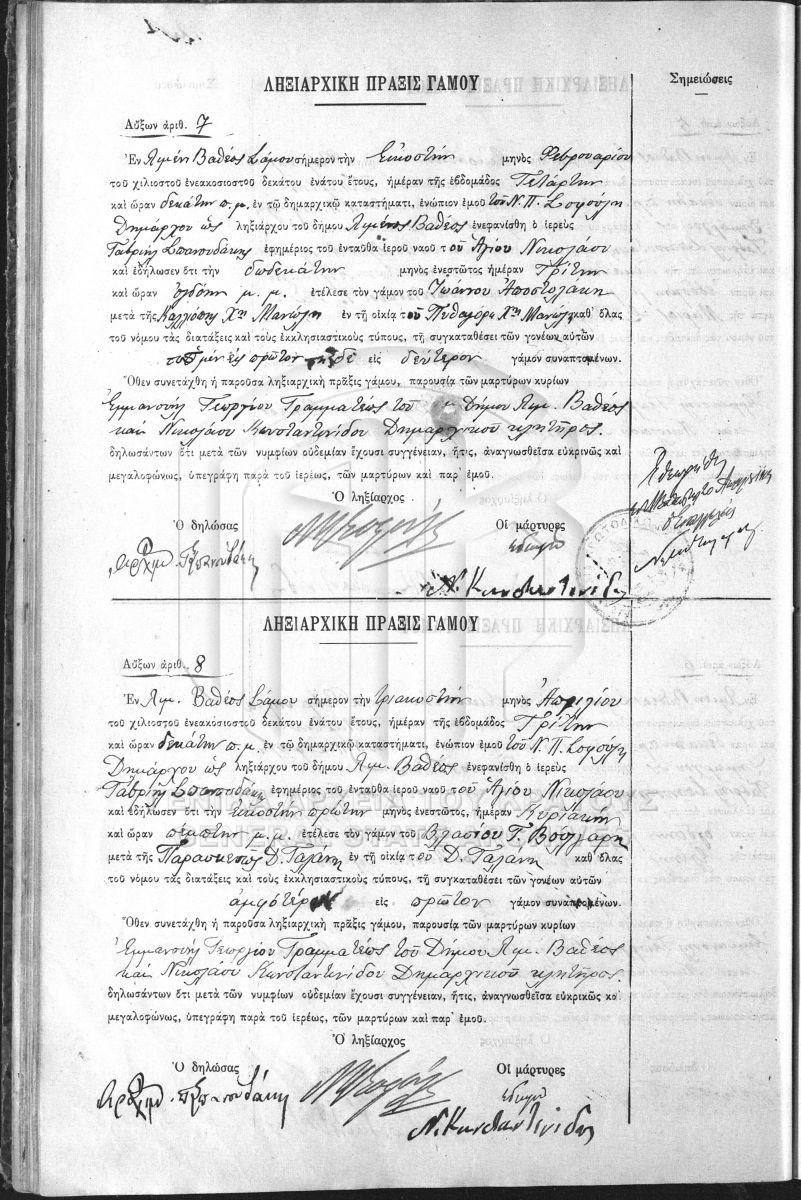 ΛΗΞΙΑΡΧΙΚΗ ΠΡΑΞΙΣ ΓΑΜΟΥ
Σημειώσεις
Αὔξων ἀριθ. 7
Ἐν Λιμένι Βαθέος Σάμου σήμερον τὴν Εἰκοστὴν μηνὸς Φεβρουαρίου
τοῦ χιλιοστοῦ ἐνεακοσιοστοῦ δεκάτου ἐνάτου ἔτους, ἡμέραν τῆς ἑβδομάδος Τετάρτην
καὶ ὥραν δεκάτην π.μ. ἐν τῷ δημαρχικῷ καταστήματι, ἐνώπιον ἐμοῦ τοῦ Ν. Π. Σοφούλη
Δημάρχου ὡς ληξιάρχου τοῦ δήμου Λιμένος Βαθέος ἐνεφανίσθη ὁ ἱερεὺς
Γαβριὴλ Σπανουδάκης ἐφημέριος τοῦ ἐνταῦθα ἱεροῦ ναοῦ τοῦ Ἁγίου Νικολάου
καὶ ἐδήλωσεν ὅτι τὴν δωδεκάτην μηνὸς ἐνεστῶτος ἡμέραν Τρίτην
καὶ ὥραν ὀγδόην μ.μ. ἐτέλεσε τὸν γάμον τοῦ Ἰωάννου Ἀποστολάκη
μετὰ τῆς Καλλιόπης Χʺ Μανώλη ἐν τῇ οἰκίᾳ τοῦ Πυθαγόρα Χʺ Μανώλη καθ' ὅλας
τοῦ νόμου τὰς διατάξεις καὶ τοὺς ἐκκλησιαστικοὺς τύπους, τῇ συγκαταθέσει τῶν γονέων αὐτῶν
τοῦ μὲν εἰς πρῶτον τῆς δὲ εἰς δεύτερον γάμον συναπτομένων.
Ὅθεν συνετάχθη ἡ παροῦσα ληξιαρχικὴ πρᾶξις γάμου, παρουσίᾳ τῶν μαρτύρων κυρίων
Ἐμμανουὴλ Γεωργίου Γραμματέως τοῦ Δήμου Λιμ. Βαθέος
καὶ Νικολάου Κωνσταντινίδου Δημαρχικοῦ κλητῆρος.
δηλωσάντων ὅτι μετὰ τῶν νυμφίων οὐδεμίαν ἔχουσι συγγένειαν, ἥτις, ἀναγνωσθεῖσα εὐκρινῶς καὶ
μεγαλοφώνως, ὑπεγράφη παρὰ τοῦ ἱερέως, τῶν μαρτύρων καὶ παρ' ἐμοῦ.
Ὁ ληξίαρχος
Ὁ δηλώσας
Οἱ μάρτυρες
Ν. Κωνσταντινίδης
ΛΗΞΙΑΡΧΙΚΗ ΠΡΑΞΙΣ ΓΑΜΟΥ
Αὔξων ἀριθ. 8
Ἐν Λιμ. Βαθέος Σάμου σήμερον τὴν τριακοστὴν μηνὸς Ἀπριλίου
τοῦ χιλιοστοῦ ἐνεακοσιοστοῦ δεκάτου ἐνάτου ἔτους, ἡμέραν τῆς ἑβδομάδος Τρίτην
καὶ ὥραν δεκάτην π.μ. ἐν τῷ δημαρχικῷ καταστήματι, ἐνώπιον ἐμοῦ τοῦ Ν. Π. Σοφούλη
Δημάρχου ὡς ληξιάρχου τοῦ δήμου Λιμ. Βαθέος ἐνεφανίσθη ὁ ἱερεὺς
Γαβριὴλ Σπανουδάκης ἐφημέριος τοῦ ἐνταῦθα ἱεροῦ ναοῦ τοῦ Ἁγίου Νικολάου
καὶ ἐδήλωσεν ὅτι τὴν εἰκοστὴν πρώτην μηνὸς ἐνεστῶτος, ἡμέραν Κυριακὴν
καὶ ὥραν πέμπτην μ.μ. ἐτέλεσε τὸν γάμον τοῦ Βλασίου Γ. Βούλγαρη
μετὰ τῆς Παρασκευῆς Δ. Γαλάνη ἐν τῇ οἰκίᾳ τοῦ Δ. Γαλάνη καθ' ὅλας
τοῦ νόμου τὰς διατάξεις καὶ τοὺς ἐκκλησιαστικοὺς τύπους, τῇ συγκαταθέσει τῶν γονέων αὐτῶν
ἀμφότεροι εἰς πρῶτον γάμον συναπτομένων.
Ὅθεν συνετάχθη ἡ παροῦσα ληξιαρχικὴ πρᾶξις γάμου, παρουσίᾳ τῶν μαρτύρων κυρίων
Ἐμμανουὴλ Γεωργίου Γραμματέως τοῦ Δήμου Λιμ. Βαθέος
καὶ Νικολάου Κωνσταντινίδου Δημαρχικοῦ κλητῆρος.
δηλωσάντων ὅτι μετὰ τῶν νυμφίων οὐδεμίαν ἔχουσι συγγένειαν, ἥτις, ἀναγνωσθεῖσα εὐκρινῶς κα
μεγαλοφώνως, ὑπεγράφη παρὰ τοῦ ἱερέως, τῶν μαρτύρων καὶ παρ' ἐμοῦ.
Ὁ ληξίαρχος
Ὁ δηλώσας
Οἱ μάρτυρες
Ν. Κωνσταντινίδης